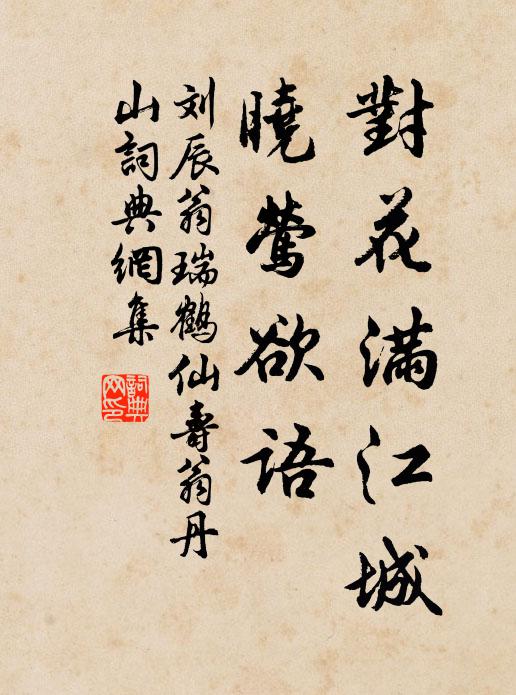 對花滿江城
曉鶯欲語
刘辰翁瑞鶴仙壽翁丹
山詞典網集
詞典
网印